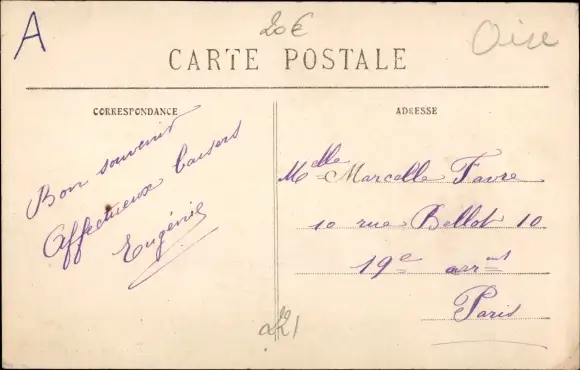 A
20€
Oise
CARTE POSTALE
CORRESPONDANCE
ADRESSE
Bon souvenir
Affectueux baisers
Eugénie
Melle Marcelle Favre
10 rue Bellot 10
19e arrnt
Paris